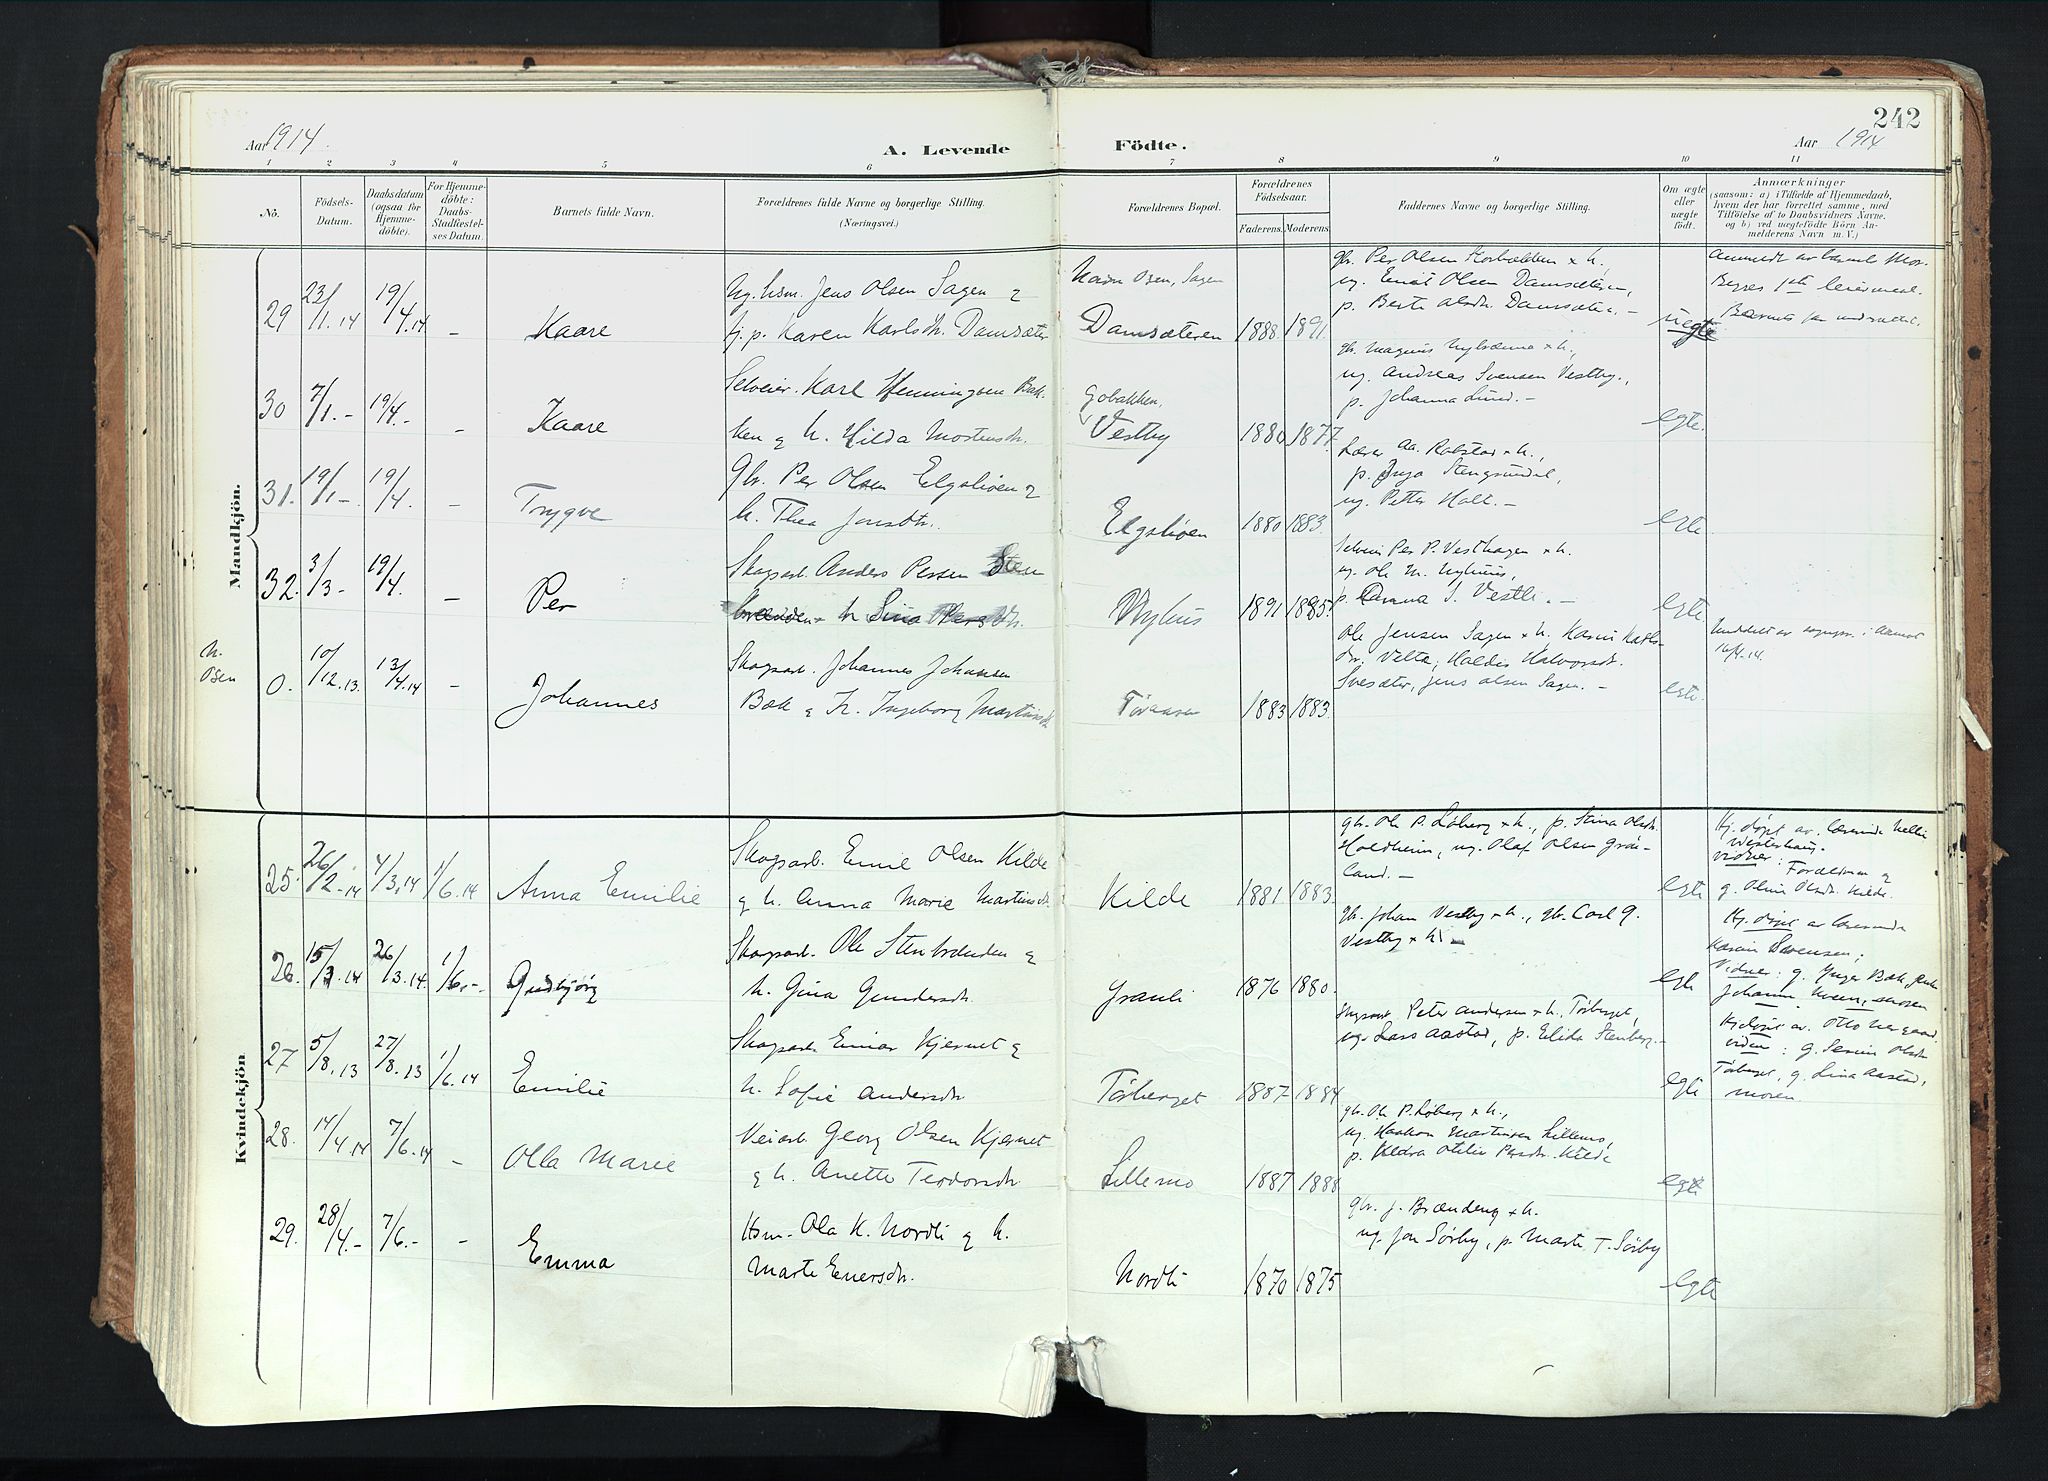 242
Aar 1914.
A. Levende Födte.
Aar 1914
1 2 3 4 5 6 7 8 9 10 11
Nö.
Födsels-
Datum.
Daabsdatum
(ogsaa for
Hjemme-
döbte).
For Hjemme-
döbte:
Daabs-
Stadfæstel-
ses Datum.
Barnets fulde Navn.
Forældrenes fulde Navne og borgerlige Stilling.
(Næringsvei.)
Forældrenes Bopæl.
Forældrenes
Födselsaar.
Faderens. Moderens.
Faddernes Navne og borgerlige Stilling.
Om ægte
eller
uægte
födt.
Anmærkninger
(saasom: a) i Tilfælde af Hjemmedaab,
hvem der har forrettet samme, med
Tilföielse af to Daabsvidners Navne.
og b) ved uægtefödte Börn An-
melderens Navn m. V.)
Mandkjön.
29 23/1.14 19/4.14 - Kaare
Ug. hsm. Jens Olsen Sagen &
tj. p. Karen Karlsdtr. Damsæter
Nordre Osen, Sagen
Damsæteren 1888. 1891.
gbr. Per Olsen x h.,
ug. Emil Olsen Damsæteren,
p. Berte Olsdtr. Damsæter. -
uegte
30 7/1.- 19/4.- - Kaare
Selveier. Karl Henningsen Bak-
ken & h. Hilda Mortensdtr.
Gobakken,
Vestby 1880 1877.
gbr. Magnus x h.,
ug. Andreas Svensen Vestby.,
p. Johanna Lund. -
egte.
31. 19/1- 19/4. - Trygve
Gbr. Per Olsen Elgshøen &
h. Thea Jensdtr.
Elgshøen 1880 1883.
Lærer Aa. Robstad x h.,
p. Inga Stengrundet,
ug. Petter Holt. -
egte.
32. 3/3- 19/4. - Per
Skogsarb. Anders Persen Sten
h.
Nyhus 1891 1885.
Selveier Per P. Vesthagen x h.
ug. Ole M. Nyhuus,
p. Emma S. Vestli. -
egte.
N.
Osen
0. 10/12.13. 13/4.14 - Johannes
Skogsarb. Johannes Johansen
Bæk & h. Ingeborg Martinsdtr.
1883 1883.
Ole Jensen Sagen x h. Karen Karls-
dtr. Velta, Haldis Halvorsdtr.
Svesæter, Jens Olsen Sagen. -
egte.
16/4.14.
Kvindekjön
25. 26/2.14 4/3.14 1/6.14 Anna Emilie
Skogsarb. Emil Olsen Kilde
& h. Anna Marie Martinsdtr.
Kilde 1881 1883.
gbr. Ole P. Løberg x h., p. Stina Olsdtr.
Holdheim, ug. Olaf Olsen Grøn-
land. -
egte
Hj. døpt av lærerinde Nelli
Westerhaug.
Vidner: Forældrene &
g. Oline Olsdtr. Kilde.
26. 15/3.14 26/3.14. 1/6.-. Gudbjørg
Skogsarb. Ole Stenbrænden &
h. Gina Gundersdtr.
Granli 1876 1880.
gbr. Johan Vestby x h., gbr. Carl G.
Vestby x h. -
egte
Hj. døpt av lærerinde
Karin Sørensen;
Vidner: g. Inger Bæk,
27 5/8.13 27/8.13 1/6.14 Emilie
Skogsarb. Einar Kjernet &
h. Sofie Andersdtr.
Tørberget 1887 1884
Skogsarb. Peter Andersen x h., Tørberget,
ug. Lars Aastad, p. Elida Stenberg. -
egte
Hj.døpt av. Otto Nergaard.
vidner: g. Serine Olsdtr.
Tørberget, g. Lina Aastad,
moren.
28. 14/4.14 7/6.14 - Olla Marie
Veiarb. Georg Olsen Kjernet
& h. Anette Teodorsdtr.
Lillemo 1887 1888
gbr. Ole P. Løberg x h.,
ug. Haakon Martinsen Lillemo,
p. Otilie Persdtr. Kilde
egte
29. 28/4.- 7/6.- - Emma
Hsm. Ola K. Nordli & h.
Marte Enersdtr.
Nordli 1870 1875
gbr. J. Brændeng x h.
ug. Jon Sørby, p. Marte T. Sørby
egte